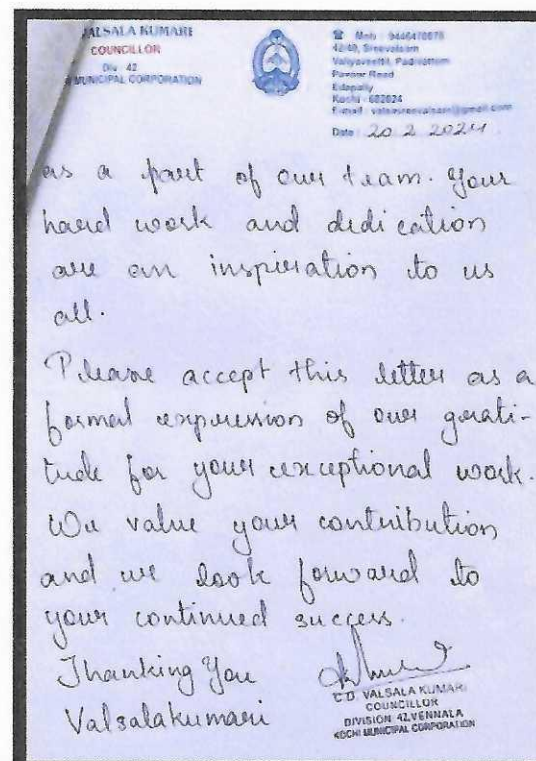 VALSALA KUMARI
COUNCILLOR
Div. 42
MUNICIPAL CORPORATION
Mob : 9446470878
42/49, Sreevalsam
Valiyaveettil, Padivattom
Road
Edapally
Kochi - 682024
E-mail : @gmail.com
Date : 20.2.2024
as a part of our team. Your
hard work and dedication
are an inspiration to us
all.
Please accept this letter as a
formal expression of our grati-
tude for your exceptional work.
We value your contribution
and we look forward to
your continued success.
Thanking You
Valsalakumari
C.D. VALSALA KUMARI
COUNCILLOR
DIVISION 42, VENNALA
KOCHI MUNICIPAL CORPORATION